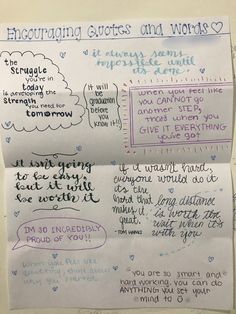 Encouraging Quotes and Words♡
it always seems
impossible until
its done.
the
Struggle
you're in
today
is developing the
Strength
you need for
tomorrow
it will
be
graduation
before
you
know it!!
when you feel like
you CANNOT go
another STEP,
that's when you
GIVE IT EVERYTHING
you've got!
it isn't going
to be easy,
but it will
be worth it
if it wasn't hard,
everyone would do it
its the
hard that
makes it
great
- TOM HANKS
long distance
is worth the
wait when it's
with you
IM SO INCREDIBLY
PROUD OF YOU!!
when you feel like
quitting, think about
why you started
you are so smart and
hard working, you can do
ANYTHING you set your
mind to ☺